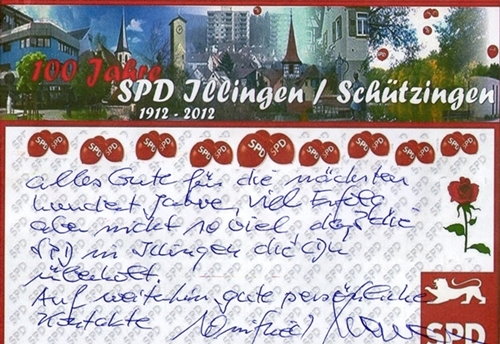 100 Jahre
SPD Illingen / Schützingen
1912 - 2012
SPD SPD SPD SPD SPD
alles Gute für die nächsten
hundert Jahre, viel Erfolg
aber nicht so viel daß die
SPD in Illingen die CDU
überholt.
Auf weiterhin gute persönliche
Kontakte Winfried
SPD